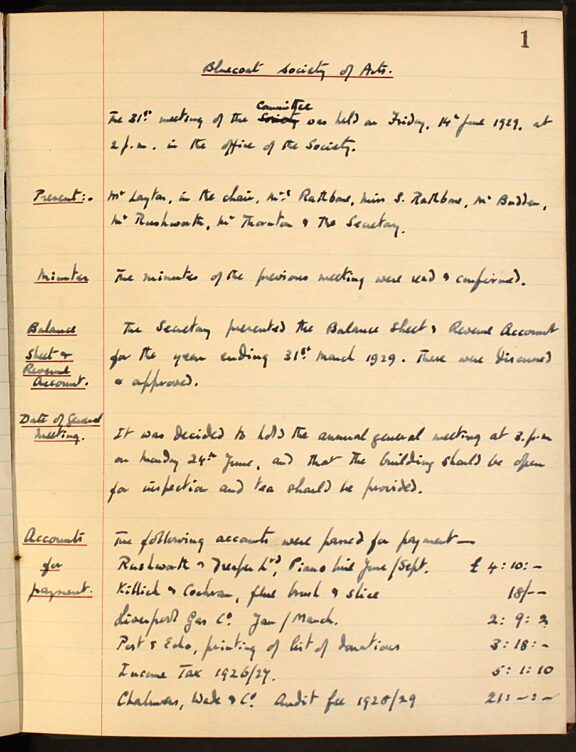 1
Bluecoat Society of Arts.
The 31st meeting of the Society Committee was held on Friday, 14th June 1929, at
2 p.m. in the office of the Society.
Present:- Mr Layton, in the chair, Mrs Rathbone, Miss S. Rathbone, Mr Budden,
Mr Rushworth, Mr Thornton & The Secretary.
Minutes The minutes of the previous meeting were read & confirmed.
Balance Sheet & Revenue Account. The Secretary presented the Balance Sheet & Revenue Account
for the year ending 31st March 1929. These were discussed
& approved.
Date of General Meeting. It was decided to hold the annual general meeting at 3. p.m
on Monday 24th June, and that the building should be open
for inspection and tea should be provided.
Accounts for payment. The following accounts were passed for payment—
Rushworth & Dreaper Ltd, Piano hire June/Sept. £ 4:10:-
Killick & Cochran, flue brush & slice 18/--
Liverpool Gas Co. Jan/March. 2:9:2
Post & Echo, printing of list of donations 3:18:-
Income Tax 1926/27. 5:1:10
Chalmers, Wade & Co. Audit fee 1928/29 21:-:-